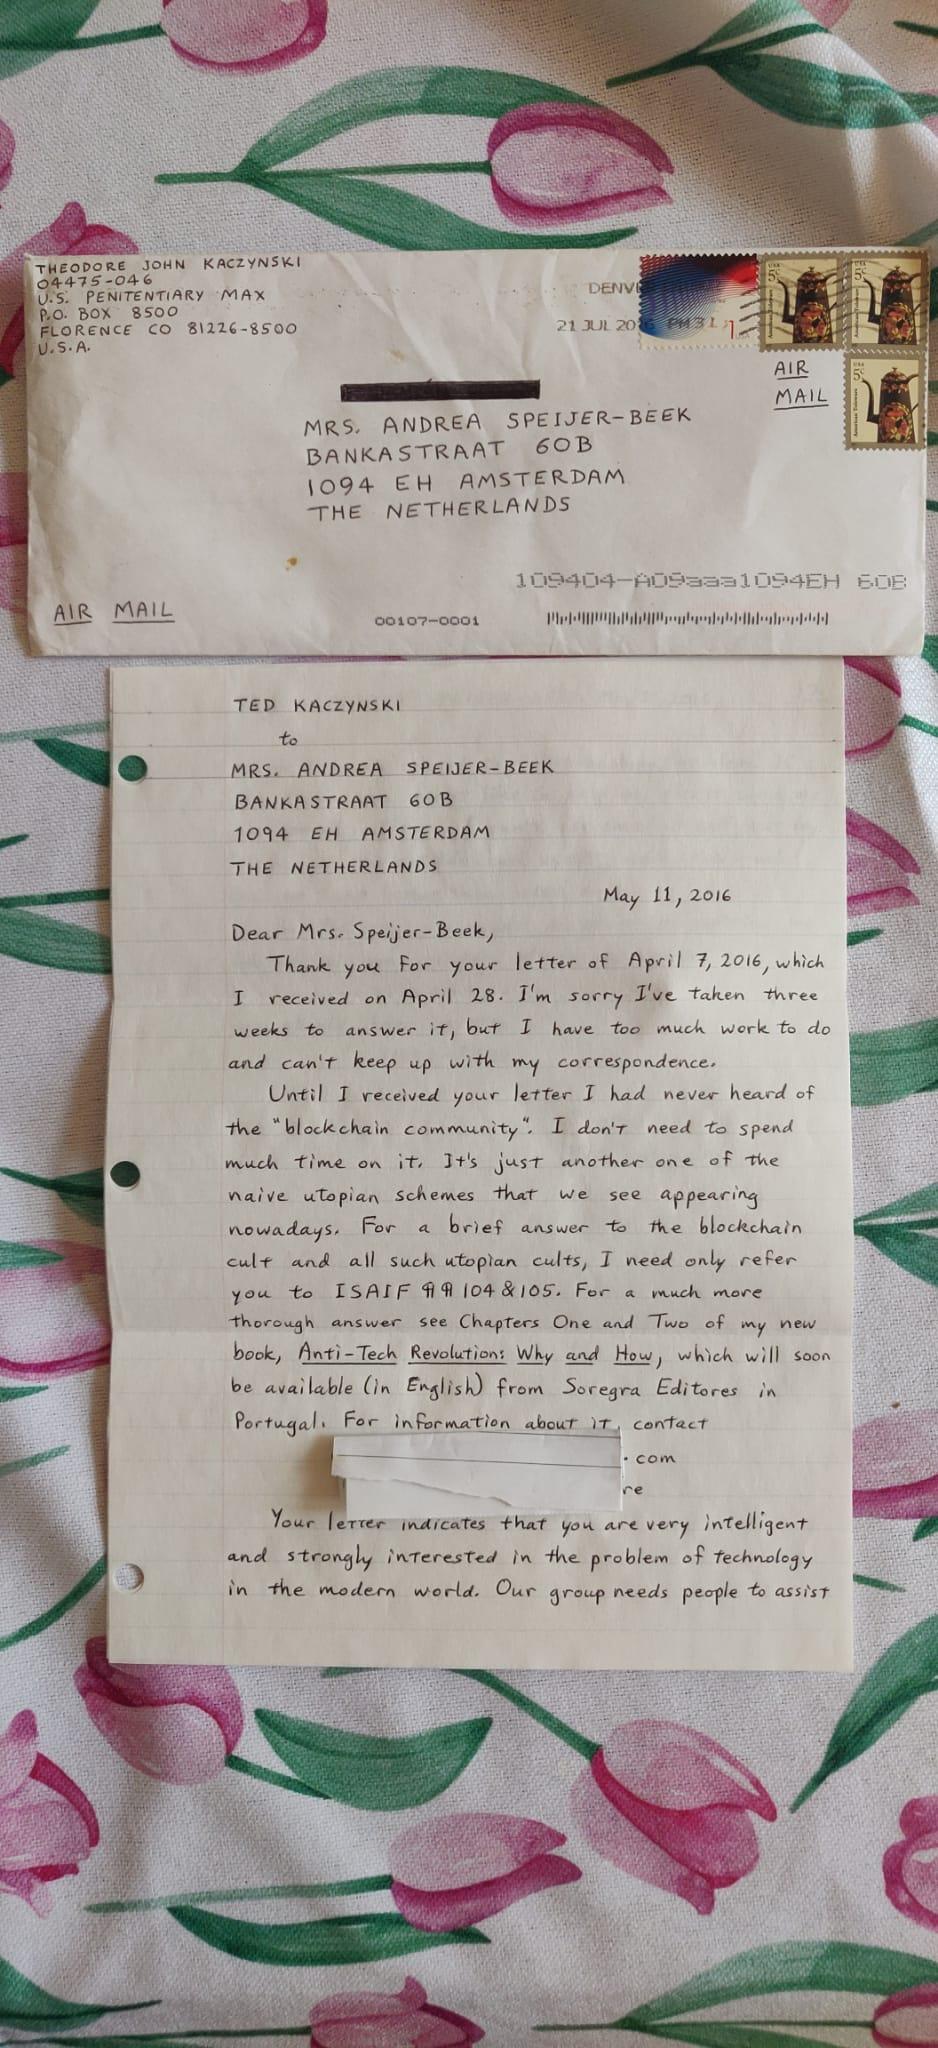 THEODORE JOHN KACZYNSKI
04475-046
U.S. PENITENTIARY MAX
P.O. BOX 8500
FLORENCE CO 81226-8500
U.S.A.
DENV
21 JUL 20 PM 3
1
USA 5¢
USA 5¢
USA 5¢
AIR
MAIL
MRS. ANDREA SPEIJER-BEEK
BANKASTRAAT 60B
1094 EH AMSTERDAM
THE NETHERLANDS
109404-A09aaa1094EH 60B
AIR MAIL
00107-0001
TED KACZYNSKI
to
MRS. ANDREA SPEIJER-BEEK
BANKASTRAAT 60B
1094 EH AMSTERDAM
THE NETHERLANDS
May 11, 2016
Dear Mrs. Speijer-Beek,
Thank you for your letter of April 7, 2016, which
I received on April 28. I'm sorry I've taken three
weeks to answer it, but I have too much work to do
and can't keep up with my correspondence.
Until I received your letter I had never heard of
the "blockchain community". I don't need to spend
much time on it. It's just another one of the
naive utopian schemes that we see appearing
nowadays. For a brief answer to the blockchain
cult and all such utopian cults, I need only refer
you to ISAIF ¶¶ 104 & 105. For a much more
thorough answer see Chapters One and Two of my new
book, Anti-Tech Revolution: Why and How, which will soon
be available (in English) from Soregra Editores in
Portugal. For information about it, contact
.com
re
Your letter indicates that you are very intelligent
and strongly interested in the problem of technology
in the modern world. Our group needs people to assist